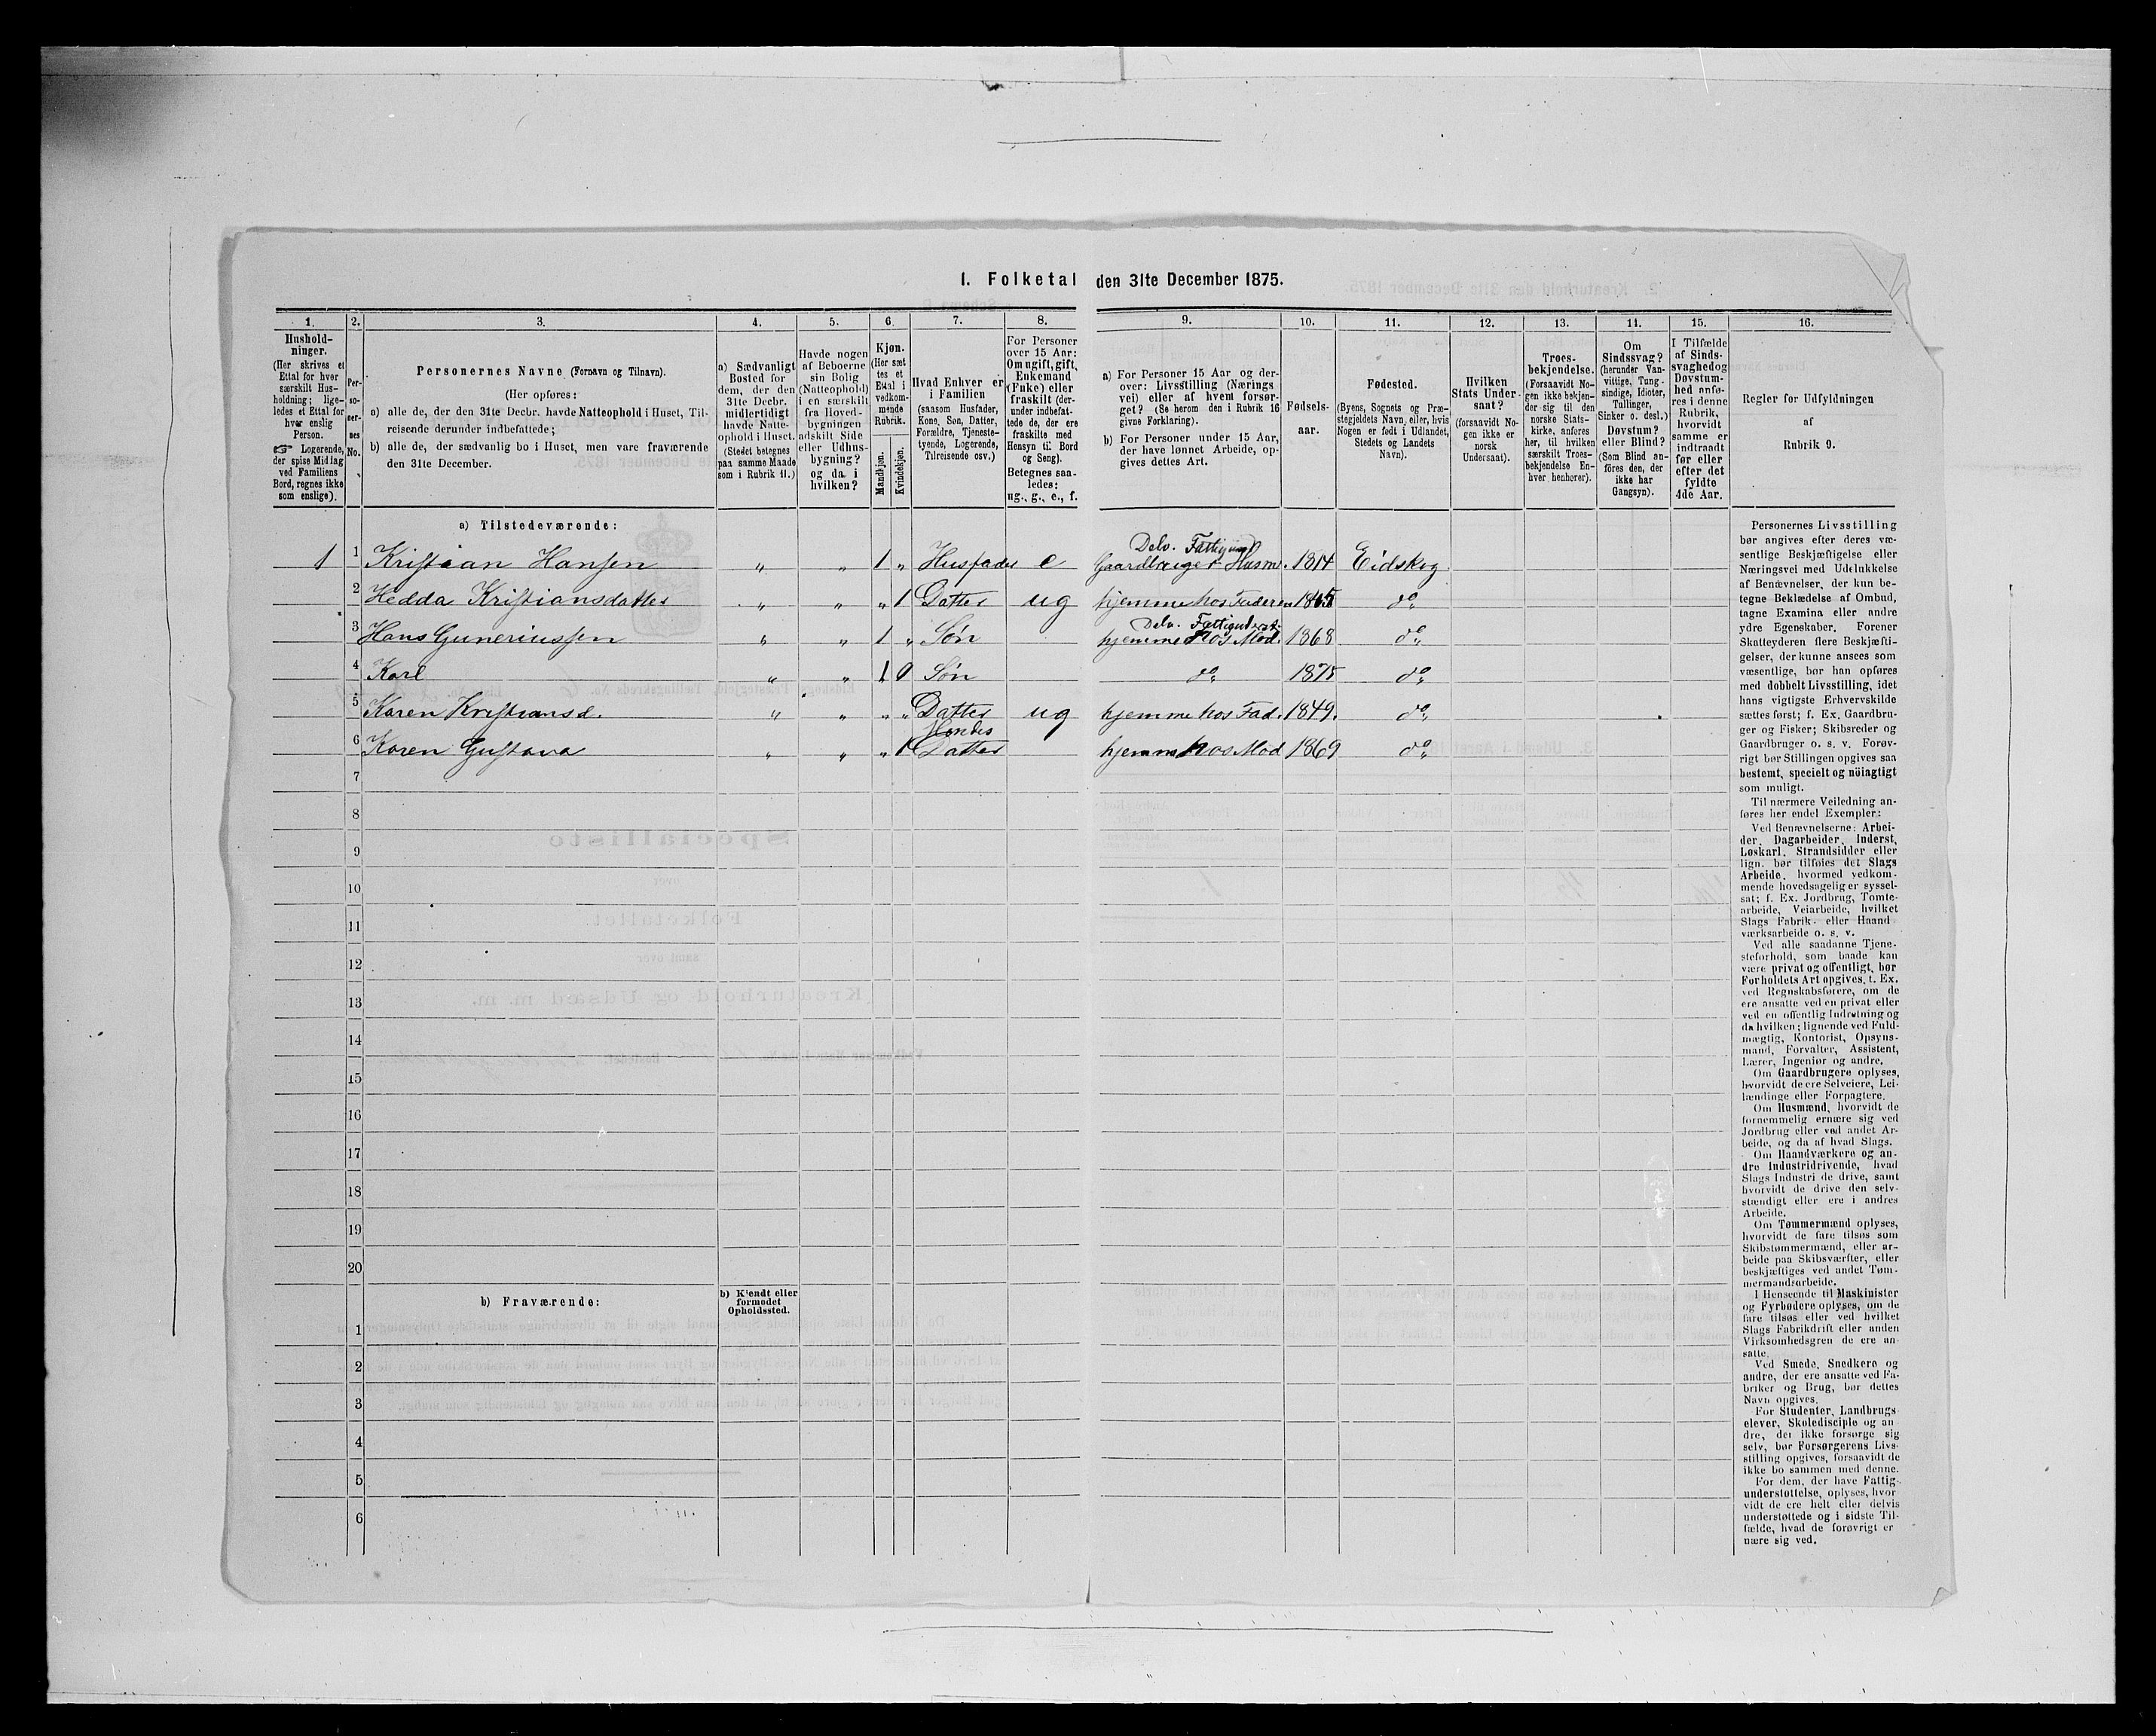 1. Folketal den 31te December 1875.
1.
Hushold-
ninger.
(Her skrives et
Ettal for hver
særskilt Hus-
holdning; lige-
ledes et Ettal for
hver enslig
Person.
☞ Logerende,
der spise Middag
ved Familiens
Bord, regnes ikke
som enslige).
2.
Per-
so-
ner-
nes
No.
3.
Personernes Navne (Fornavn og Tilnavn).
(Her opføres:
a) alle de, der den 31te Decbr. havde Natteophold i Huset, Til-
reisende derunder indbefattede;
b) alle de, der sædvanlig bo i Huset, men vare fraværende
den 31te December.
4.
a) Sædvanligt
Bosted for
dem, der den
31te Decbr.
midlertidigt
havde Natte-
ophold i Huset.
(Stedet betegnes
paa samme Maade
som i Rubrik 11.)
5.
Havde nogen
af Beboerne
sin Bolig
(Natteophold)
i en særskilt
fra Hoved-
bygningen
adskilt Side
eller Udhus-
bygning?
og da i
hvilken?
6.
Kjøn.
(Her sæt
tes et
Ettal i
vedkom-
mende
Rubrik.
Mandkjøn.
Kvindekjøn.
7.
Hvad Enhver er
i Familien
(saasom Husfader,
Kone, Søn, Datter,
Forældre, Tjeneste-
tyende, Logerende,
Tilreisende osv.)
8.
For Personer
over 15 Aar:
Om ugift, gift,
Enkemand
(Enke) eller
fraskilt (der-
under indbefat-
tede de, der ere
fraskilte med
Hensyn til Bord
og Seng).
Betegnes saa-
ledes:
ug., g., e., f.
9.
a) For Personer 15 Aar og der-
over: Livsstilling (Nærings
vei) eller af hvem forsør-
get? (Se herom den i Rubrik 16
givne Forklaring).
b) For Personer under 15 Aar,
der have lønnet Arbeide, op-
gives dettes Art.
10.
Fødsels-
aar.
11.
Fødested.
(Byens, Sognets og Præ-
stegjeldets Navn, eller, hvis
Nogen er født i Udlandet,
Stedets og Landets
Navn).
12.
Hvilken
Stats Under-
saat?
(forsaavidt No-
gen ikke er
norsk
Undersaat).
13.
Troes-
bekjendelse.
(Forsaavidt No-
gen ikke bekjen-
der sig til den
norske Stats-
kirke, anføres
her, til hvilken
særskilt Troes-
bekjendelse En-
hver henhører).
14.
Om
Sindssvag?
(herunder Van-
vittige, Tung-
sindige, Idioter,
Tullinger,
Sinker o. desl.)
Døvstum?
eller Blind?
(Som Blind an-
føres den, der
ikke har
Gangsyn).
15.
I Tilfælde
af Sinds-
svaghed og
Døvstum-
hed anfø-
res i denne
Rubrik,
hvorvidt
samme er
indtraadt
før eller
efter det
fyldte
4de Aar.
16.
Regler for Udfyldningen
af
Rubrik 9.
a) Tilstedeværende:
Delv. Fattigund
1 1 Kristian Hansen " " 1 " Husfader e Gaardbruger Husm. 1814 Eidskog
2 Hedda Kristiansdatter " " " 1 Datter ug hjemme hos Faderen 1845 do
Delv. Fattigunderst.
3 Hans Gunerinssen " " 1 " Søn hjemme hos Mod. 1868 do
4 Karl " " 1 0 Søn do 1875 do
5 Karen Kristiansd. " " " " Datter ug hjemme hos Fad. 1849. do
Hendes
6 Karen Gustava " " " 1 Datter hjemme hos Mod 1869 do
7
8
9
10
11
12
13
14
15
16
17
18
19
20
b) Fraværende:
b) Kjendt eller
formodet
Opholdssted.
1
2
3
4
5
6
Personernes Livsstilling
bør angives efter deres væ-
sentlige Beskjæftigelse eller
Næringsvei med Udelukkelse
af Benævnelser, der kun be-
tegne Beklædelse af Ombud,
tagne Examina eller andre
ydre Egenskaber. Forener
Skatteyderen flere Beskjæfti-
gelser, der kunne ansees som
væsentlige, bør han opføres
med dobbelt Livsstilling, idet
hans vigtigste Erhvervskilde
sættes først; f. Ex. Gaardbru-
ger og Fisker; Skibsreder og
Gaardbruger o. s. v. Forøv-
rigt bør Stillingen opgives saa
bestemt, specielt og nöiagtigt
som muligt.
Til nærmere Veiledning an-
føres her endel Exempler:
Ved Benævnelserne: Arbei-
der, Dagarbeider, Inderst,
Løskarl, Strandsidder eller
lign. bør tilføies det Slags
Arbeide, hvormed vedkom-
mende hovedsagelig er syssel-
sat; f. Ex. Jordbrug, Tomte-
arbeide, Veiarbeide, hvilket
Slags Fabrik- eller Haand
værksarbeide o. s. v.
Ved alle saadanne Tjene-
steforhold, som baade kan
være privat og offentligt, bør
Forholdets Art opgives, t. Ex.
ved Regnskabsførere, om de
ere ansatte ved en privat eller
ved en offentlig Indretning og
da hvilken; lignende ved Fuld-
mægtig, Kontorist, Opsyns-
mand, Forvalter, Assistent,
Lærer, Ingeniør og andre.
Om Gaardbrugere oplyses,
hvorvidt de ere Selveiere, Lei-
lændinge eller Forpagtere.
Om Husmænd, hvorvidt de
fornemmelig ernære sig ved
Jordbrug eller ved andet Ar-
beide, og da af hvad Slags.
Om Haandværkere og an-
dre Industridrivende, hvad
Slags Industri de drive, samt
hvorvidt de drive den selv-
stændigt eller ere i andres
Arbeide.
Om Tømmermænd oplyses,
hvorvidt de fare tilsøs som
Skibstømmermænd, eller ar-
beide paa Skibsværfter, eller
beskjæftiges ved andet Tøm-
mermandsarbeide.
I Henseende til Maskinister
og Fyrbødere oplyses, om de
fare tilsøs eller ved hvilket
Slags Fabrikdrift eller anden
Virksomhedsgren de ere an-
satte.
Ved Smede, Snedkere og
andre, der ere ansatte ved Fa-
briker og Brug, bør dettes
Navn opgives.
For Studenter, Landbrugs
elever, Skoledisciple og an
dre, der ikke forsørge sig
selv, bør Forsørgerens Livs-
stilling opgives, forsaavidt de
ikke bo sammen med denne.
For dem, der have Fattig-
understøttelse, oplyses, hvor
vidt de ere helt eller delvis
understøttede og i sidste Til-
fælde, hvad de forøvrigt er
nære sig ved.